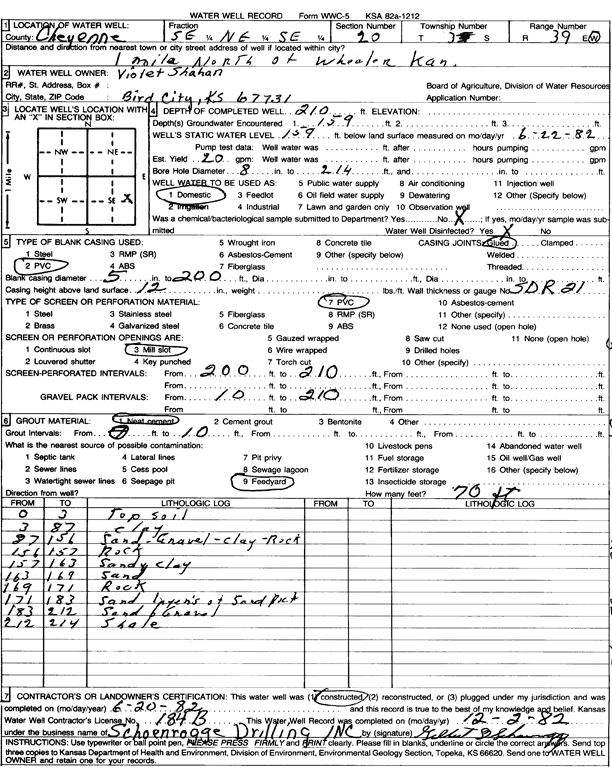 WATER WELL RECORD Form WWC-5 KSA 82a-1212
1 LOCATION OF WATER WELL: Fraction Section Number Township Number Range Number
County: Cheyenne SE ¼ NE ¼ SE ¼ 20 T S R 39 E W
Distance and direction from nearest town or city street address of well if located within city?
1 mile North of Wheeler Kan.
2 WATER WELL OWNER: Violet Shahan
RR#, St. Address, Box # : Board of Agriculture, Division of Water Resources
City, State, ZIP Code : Bird City, KS 67731 Application Number:
3 LOCATE WELL'S LOCATION WITH AN "X" IN SECTION BOX:
N
NW NE
W E
SW SE X
S
1 Mile
4 DEPTH OF COMPLETED WELL. 210 ft. ELEVATION:
Depth(s) Groundwater Encountered 1. 159 ft. 2. ft. 3. ft.
WELL'S STATIC WATER LEVEL 159 ft. below land surface measured on mo/day/yr 6-22-82
Pump test data: Well water was ft. after hours pumping gpm
Est. Yield 20 gpm: Well water was ft. after hours pumping gpm
Bore Hole Diameter 8 in. to 214 ft., and in. to ft.
WELL WATER TO BE USED AS: 5 Public water supply 8 Air conditioning 11 Injection well
1 Domestic 3 Feedlot 6 Oil field water supply 9 Dewatering 12 Other (Specify below)
2 Irrigation 4 Industrial 7 Lawn and garden only 10 Observation well
Was a chemical/bacteriological sample submitted to Department? Yes No X ; If yes, mo/day/yr sample was submitted
Water Well Disinfected? Yes X No
5 TYPE OF BLANK CASING USED: 5 Wrought iron 8 Concrete tile CASING JOINTS: Glued Clamped
1 Steel 3 RMP (SR) 6 Asbestos-Cement 9 Other (specify below) Welded
2 PVC 4 ABS 7 Fiberglass Threaded
Blank casing diameter 5 in. to 200 ft., Dia in. to ft., Dia in. to ft.
Casing height above land surface 12 in., weight lbs./ft. Wall thickness or gauge No. SDR 21
TYPE OF SCREEN OR PERFORATION MATERIAL: 7 PVC 10 Asbestos-cement
1 Steel 3 Stainless steel 5 Fiberglass 8 RMP (SR) 11 Other (specify)
2 Brass 4 Galvanized steel 6 Concrete tile 9 ABS 12 None used (open hole)
SCREEN OR PERFORATION OPENINGS ARE: 5 Gauzed wrapped 8 Saw cut 11 None (open hole)
1 Continuous slot 3 Mill slot 6 Wire wrapped 9 Drilled holes
2 Louvered shutter 4 Key punched 7 Torch cut 10 Other (specify)
SCREEN-PERFORATED INTERVALS: From 200 ft. to 210 ft., From ft. to ft.
From ft. to ft., From ft. to ft.
GRAVEL PACK INTERVALS: From 10 ft. to 210 ft., From ft. to ft.
From ft. to ft., From ft. to ft.
6 GROUT MATERIAL: 1 Neat cement 2 Cement grout 3 Bentonite 4 Other
Grout Intervals: From 0 ft. to 10 ft., From ft. to ft., From ft. to ft.
What is the nearest source of possible contamination: 10 Livestock pens 14 Abandoned water well
1 Septic tank 4 Lateral lines 7 Pit privy 11 Fuel storage 15 Oil well/Gas well
2 Sewer lines 5 Cess pool 8 Sewage lagoon 12 Fertilizer storage 16 Other (specify below)
3 Watertight sewer lines 6 Seepage pit 9 Feedyard 13 Insecticide storage
Direction from well? How many feet? 70 ft
FROM TO LITHOLOGIC LOG FROM TO LITHOLOGIC LOG
0 3 Top Soil
3 87 Clay
87 156 Sand-Gravel-clay-Rock
156 157 Rock
157 163 Sandy clay
163 169 Sand
169 171 Rock
171 183 Sand layers of Sand
183 212 Sand Gravel
212 214 Shale
7 CONTRACTOR'S OR LANDOWNER'S CERTIFICATION: This water well was (1) constructed, (2) reconstructed, or (3) plugged under my jurisdiction and was
completed on (mo/day/year) 6-20-82 and this record is true to the best of my knowledge and belief. Kansas
Water Well Contractor's License No. 184B This Water Well Record was completed on (mo/day/yr) 12-2-82
under the business name of Schoenrogge Drilling INC by (signature)
INSTRUCTIONS: Use typewriter or ball point pen, PLEASE PRESS FIRMLY and PRINT clearly. Please fill in blanks, underline or circle the correct answers. Send top
three copies to Kansas Department of Health and Environment, Division of Environment, Environmental Geology Section, Topeka, KS 66620. Send one to WATER WELL
OWNER and retain one for your records.